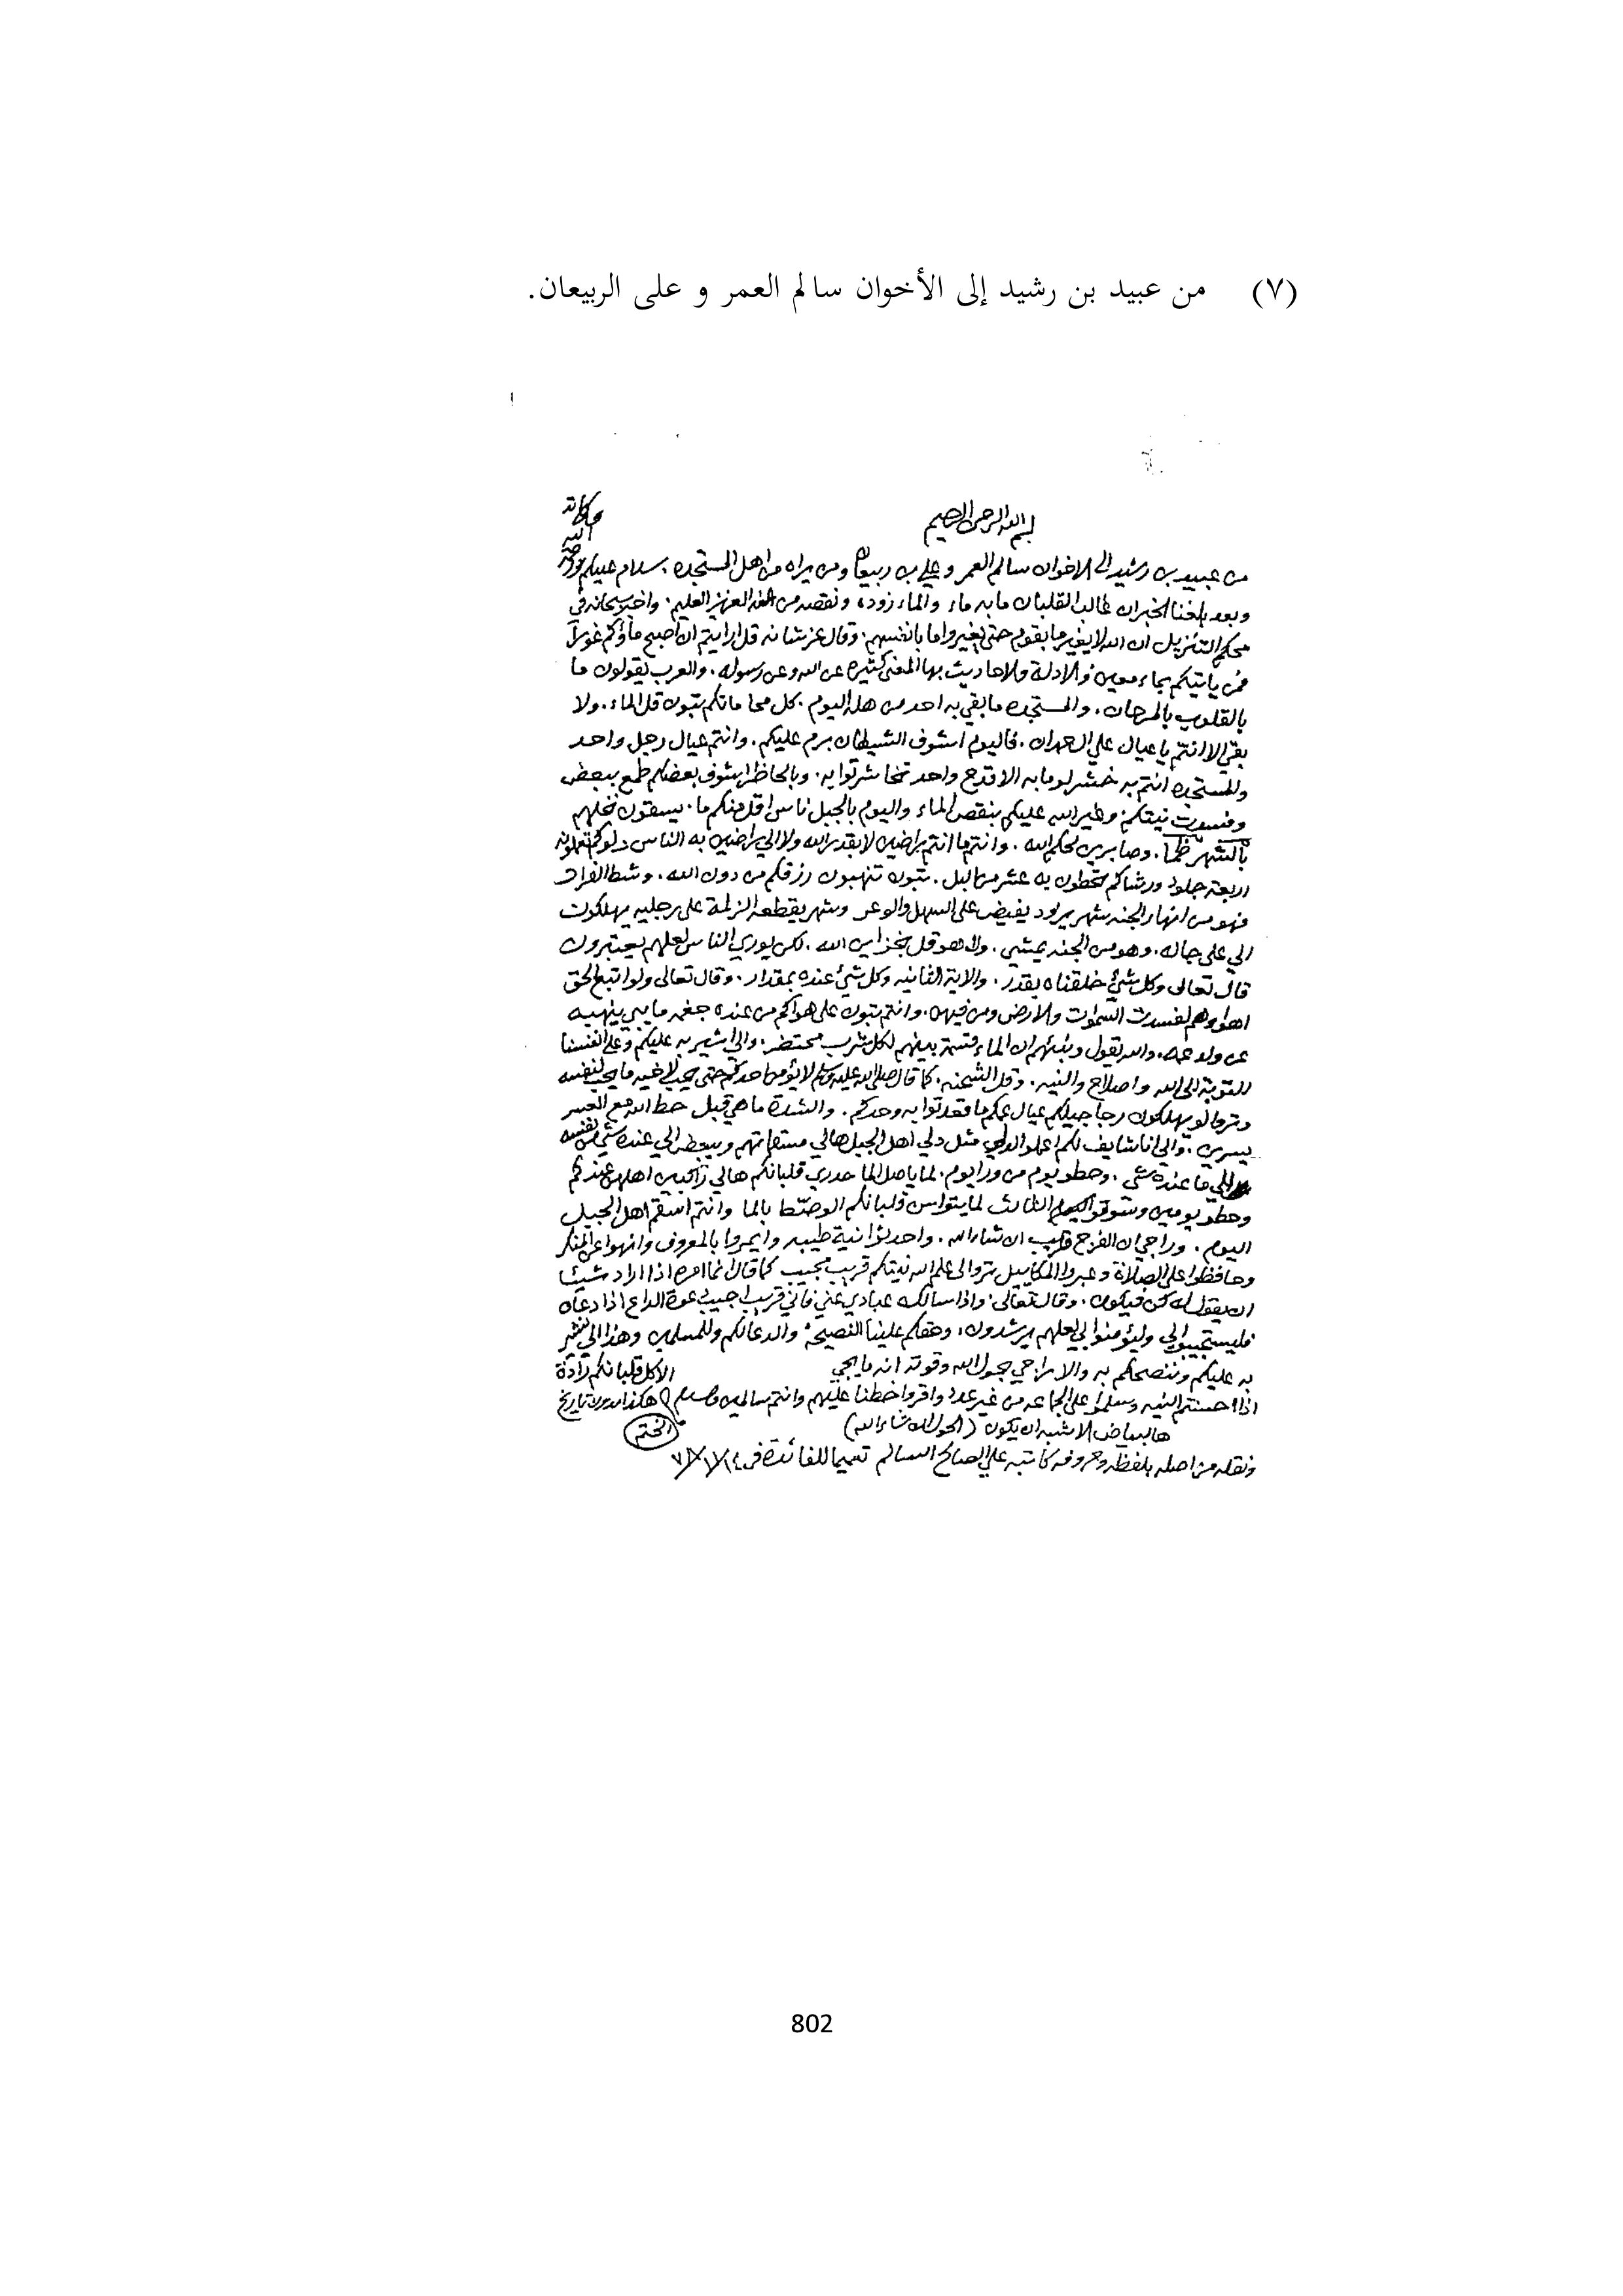 (٧) من عبيد بن رشيد إلى الأخوان سالم العمر و على الربيعان.
بسم الله الرحمن الرحيم
من عبيد بن رشيد الى الاخوان سالم العمر وعلي بن ربيعان ومن يراه من اهل المستجده. سلام عليكم ورحمة الله وبركاته
وبعد بلغنا الخبر ان غالب القلبان ما به ماء والماء زوده ونقصه من الله العزيز العليم. واخبر سبحانه في
محكم التنزيل ان الله لا يغير ما بقوم حتى يغيروا ما بانفسهم. وقال عز شانه قل ارايتم ان اصبح ماؤكم غوراً
فمن ياتيكم بماء معين والادلة والاحاديث بها المعنى كثيره عن الله وعن رسوله. والعرب يقولون ما
بالقلوب بالمرجان. والمستجده ما بقي به احد من هل اليوم. كل محا ماتكم تبون قل الماء. ولا
بقي الا انتم يا عيال علي العمران. فاليوم اشوف الشيطان برم عليكم. وانتم عيال رجل واحد
والمستجده انتم به خشر لو ما به الا قدح واحد شرتوا به. وبالحاظر اشوف بعضكم طمع ببعض
وفسدت نيتكم وغير الله عليكم بنقص الماء واليوم بالجبل ناس اقل منكم ما. يسقون نخلهم
بالشهر ظما. وصابرين لحكم الله. وانتم ما انتم براضين لا بقدر الله ولا الي براضين به الناس
اربعة جلود ورشاكم تحطون به عشر من الليل. تبون تنهبون رزقكم من دون الله. وشط الفرات
فهو من انهار الجنه شهر يزود يفيض على السهل والوعر وشهر يقطعه الزلمة على رجليه يهلكون
الي على جاله. وهو من الجنه يمشي. ولا هو قل بخزاين الله. لكن يوري الناس لعلهم يعتبرون
قال تعالى وكل شيء خلقناه بقدر. والاية الثانيه وكل شيء عنده بمقدار. وقال تعالى ولو اتبع الحق
اهواءهم لفسدت السموات والارض ومن فيهن. وانتم تبون على هواكم من عنده جغمه ما يبي ينهبه
عن ولد عمه. والله يقول ونبئهم ان الماء قسمة بينهم كل شرب محتضر. والي اشير به عليكم وعلى انفسنا
التوبة الى الله واصلاح والنيه. وقل الشحنه. كما قال صلى الله عليه وسلم لا يؤمن احدكم حتى يحب لاخيه ما يحب لنفسه
وترها لو يهلكون رجاجيلكم عيال عمكم ما قعدتوا به وحدكم. والشدة ما هي قبل حط الله مع العسر
يسرين. والي انا شايف لكم اعملوا الدلي مثل دلي اهل الجبل هالي مستقامتهم ويبحظ الي عنده شي من نفسه
للي ما عنده شي. وحطو يوم من ورا يوم. لما ياصل الما حدري قلبانكم هالي زاكبين اهلهن عندكم
وحطو يومين وسوقو اليوم الثالث لما يتواسن قلبانكم الوصّط بالما وانتم اسقم اهل الجبل
اليوم. وراجي ان الفرج قريب ان شاء الله. واحدثوا نية طيبه وايمروا بالمعروف وانهوا عن المنكر
وحافظوا على الصلاة وعبروا المكاييل تروا الى علم الله نيتكم قريب مجيب كما قال انما امره اذا اراد شيئا
ان يقول له كن فيكون. وقال تعالى واذا سالك عبادي عني فاني قريب اجيب دعوة الداع اذا دعان
فليستجيبوا لي وليؤمنوا بي لعلهم يرشدون. وحقكم علينا النصيحة والدعا لكم وللمسلمين وهذا الي نشير
به عليكم وننصحكم به والا براجي بحول الله وقوته انه ما يجي الا كل قلبانكم زادة
اذا احسنتم النيه وسلموا على الجماعه من غير عدد واقروا خطنا عليهم وانتم سالمين والسلام هكذا بدون تاريخ
هالبياض الاشبه ان يكون (الحول ان شاء الله) الختم
ونقله من اصله بلفظه وحروفه كاتبه علي الصالح السالم تعميما للفائدة في
802